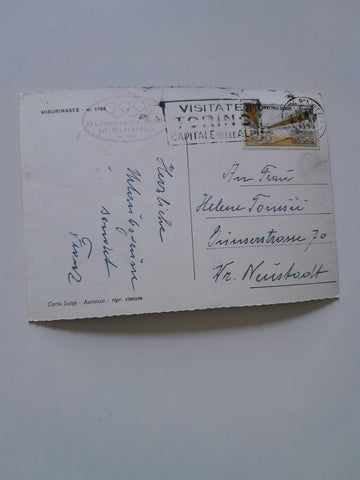 MISURINASEE - m. 1756
OLIMPIADI
MISURINA
VISITATE
TORINO
CAPITALE DELLE ALPI
Herzliche
Urlaubsgrüsse
sendet
Franz
An Frau
Helene Tomsii
Günserstrasse 70
Wr. Neustadt
Caria Luigi - Auronzo - ripr. vietata